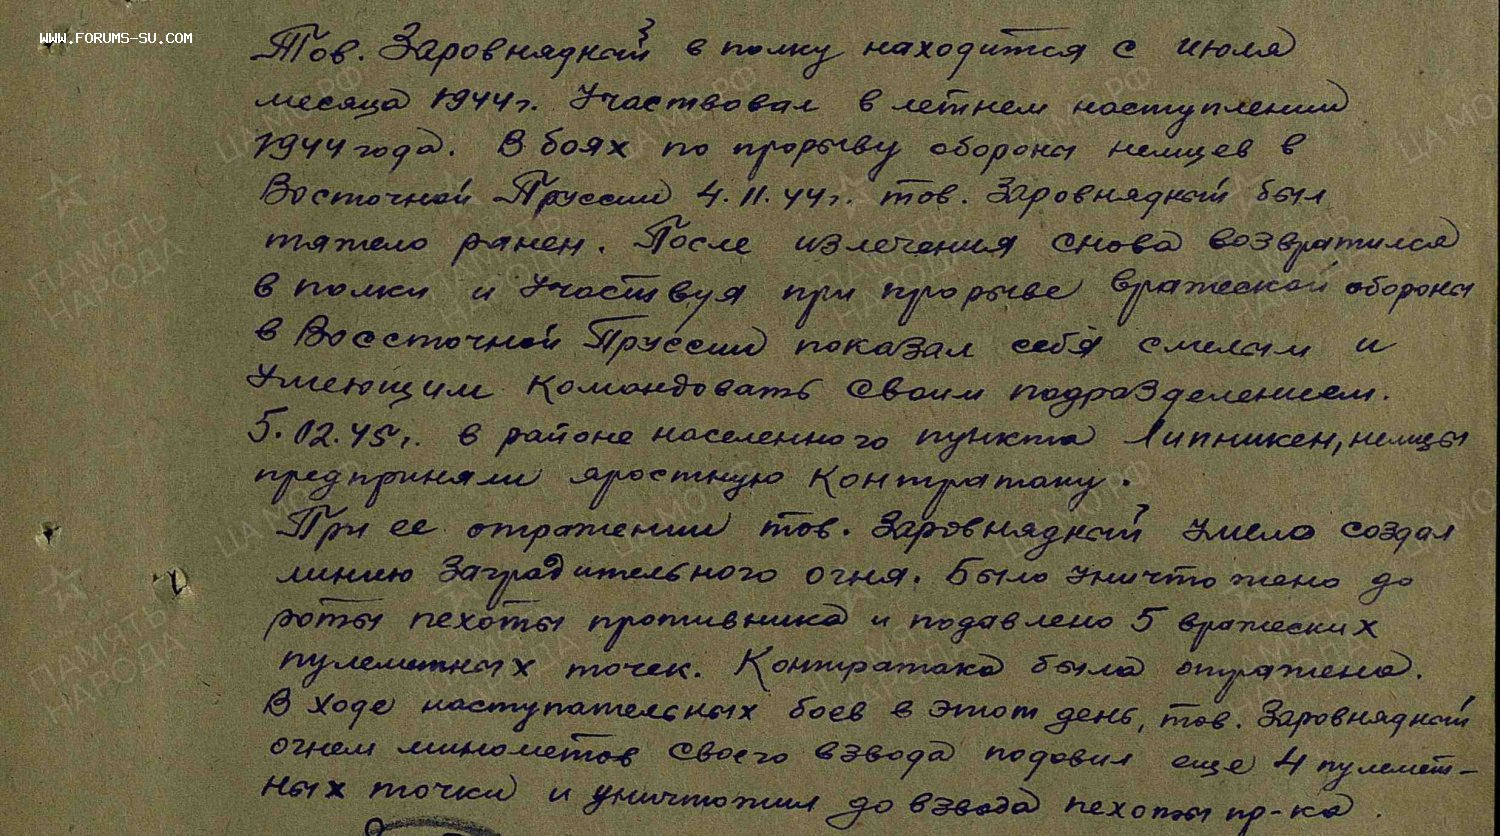 www.forums-su.com
Тов. Заровнядный в полку находится с июля
месяца 1944 г. Участвовал в летнем наступлении
1944 года. В боях по прорыву обороны немцев в
Восточной Пруссии 4.11.44 г. тов. Заровнядный был
тяжело ранен. После излечения снова возвратился
в полки и участвуя при прорыве вражеской обороны
в Воссточной Пруссии показал себя смелым и
умеющим командовать своим подразделением.
5.02.45 г. в районе населенного пункта Липникен, немцы
предприняли яростную контратаку.
При ее отражении тов. Заровнядный умело создал
линию заградительного огня. Было уничтожено до
роты пехоты противника и подавлено 5 вражеских
пулеметных точек. Контратака была отражена.
В ходе наступательных боев в этот день, тов. Заровнядный
огнем минометов своего взвода подовил еще 4 пулемет-
ных точки и уничтожил до взвода пехоты пр-ка.
ПАМЯТЬ НАРОДА
ЦА МО РФ